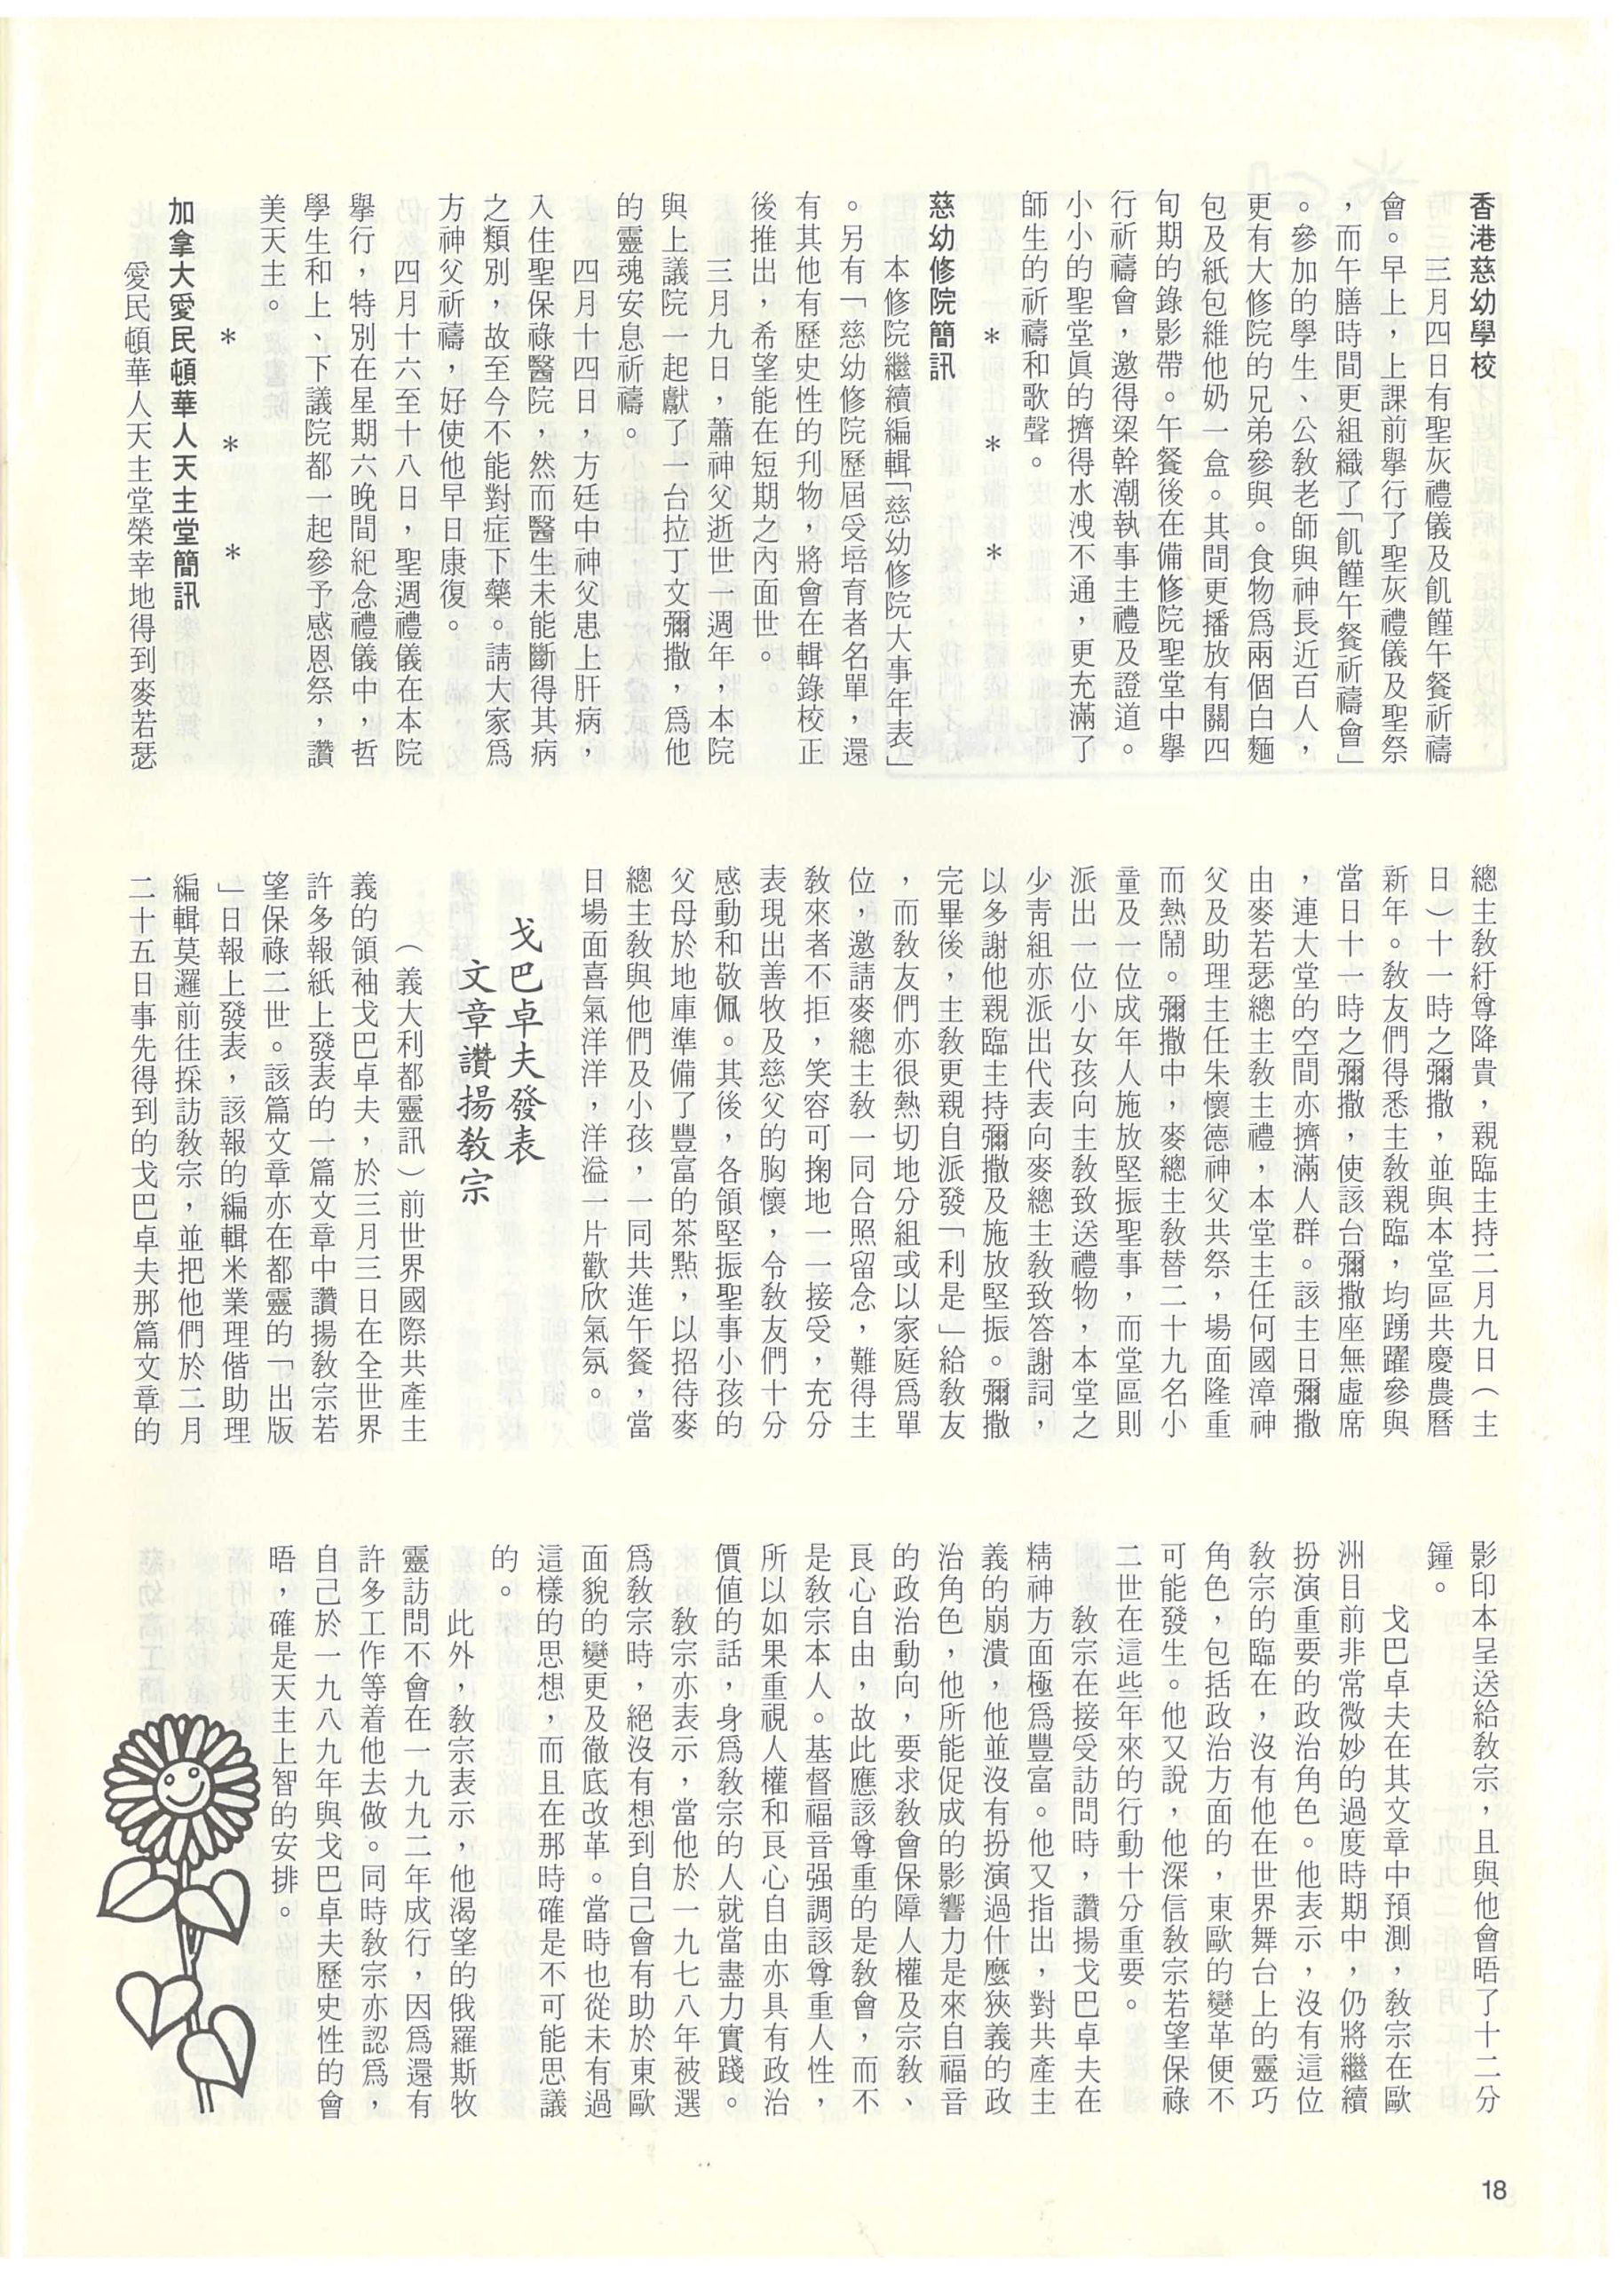 香港慈幼學校
三月四日有聖灰禮儀及飢饉午餐祈禱
會。早上，上課前舉行了聖灰禮儀及聖祭
，而午膳時間更組織了「飢饉午餐祈禱會」
。參加的學生、公教老師與神長近百人，
更有大修院的兄弟參與。食物爲兩個白麵
包及紙包維他奶一盒。其間更播放有關四
旬期的錄影帶。午餐後在備修院聖堂中舉
行祈禱會，邀得梁幹潮執事主禮及證道。
小小的聖堂眞的擠得水洩不通，更充滿了
師生的祈禱和歌聲。
＊　＊　＊
慈幼修院簡訊
本修院繼續編輯「慈幼修院大事年表」
。另有「慈幼修院歷屆受培育者名單，還
有其他有歷史性的刋物，將會在輯錄校正
後推出，希望能在短期之內面世。
三月九日，蕭神父逝世一週年，本院
與上議院一起獻了一台拉丁文彌撒，爲他
的靈魂安息祈禱。
四月十四日，方廷中神父患上肝病，
入住聖保祿醫院，然而醫生未能斷得其病
之類別，故至今不能對症下藥。請大家爲
方神父祈禱，好使他早日康復。
四月十六至十八日，聖週禮儀在本院
舉行，特別在星期六晚間紀念禮儀中，哲
學生和上、下議院都一起參予感恩祭，讚
美天主。
＊　＊　＊
加拿大愛民頓華人天主堂簡訊
愛民頓華人天主堂榮幸地得到麥若瑟
總主教紆尊降貴，親臨主持二月九日（主
日）十一時之彌撒，並與本堂區共慶農曆
新年。教友們得悉主教親臨，均踴躍參與
當日十一時之彌撒，使該台彌撒座無虛席
，連大堂的空間亦擠滿人群。該主日彌撒
由麥若瑟總主教主禮，本堂主任何國漳神
父及助理主任朱懷德神父共祭，場面隆重
而熱鬧。彌撒中，麥總主教替二十九名小
童及一位成年人施放堅振聖事，而堂區則
派出一位小女孩向主教致送禮物，本堂之
少靑組亦派出代表向麥總主教致答謝詞，
以多謝他親臨主持彌撒及施放堅振。彌撒
完畢後，主教更親自派發「利是」給教友
，而教友們亦很熱切地分組或以家庭爲單
位，邀請麥總主教一同合照留念，難得主
教來者不拒，笑容可掬地一一接受，充分
表現出善牧及慈父的胸懷，令教友們十分
感動和敬佩。其後，各領堅振聖事小孩的
父母於地庫準備了豐富的茶點，以招待麥
總主教與他們及小孩，一同共進午餐，當
日場面喜氣洋洋，洋溢一片歡欣氣氛。
戈巴卓夫發表
文章讚揚教宗
（義大利都靈訊）前世界國際共產主
義的領袖戈巴卓夫，於三月三日在全世界
許多報紙上發表的一篇文章中讚揚教宗若
望保祿二世。該篇文章亦在都靈的「出版
」日報上發表，該報的編輯米業理偕助理
編輯莫邏前往採訪教宗，並把他們於二月
二十五日事先得到的戈巴卓夫那篇文章的
影印本呈送給教宗，且與他會晤了十二分
鐘。
戈巴卓夫在其文章中預測，教宗在歐
洲目前非常微妙的過度時期中，仍將繼續
扮演重要的政治角色。他表示，沒有這位
教宗的臨在，沒有他在世界舞台上的靈巧
角色，包括政治方面的，東歐的變革便不
可能發生。他又說，他深信教宗若望保祿
二世在這些年來的行動十分重要。
教宗在接受訪問時，讚揚戈巴卓夫在
精神方面極爲豐富。他又指出，對共產主
義的崩潰，他並沒有扮演過什麼狹義的政
治角色，他所能促成的影響力是來自福音
的政治動向，要求教會保障人權及宗教、
良心自由，故此應該尊重的是教會，而不
是教宗本人。基督福音强調該尊重人性，
所以如果重視人權和良心自由亦具有政治
價值的話，身爲教宗的人就當盡力實踐。
教宗亦表示，當他於一九七八年被選
爲教宗時，絕沒有想到自己會有助於東歐
面貌的變更及徹底改革。當時也從未有過
這樣的思想，而且在那時確是不可能思議
的。
此外，教宗表示，他渴望的俄羅斯牧
靈訪問不會在一九九二年成行，因爲還有
許多工作等着他去做。同時教宗亦認爲，
自己於一九八九年與戈巴卓夫歷史性的會
晤，確是天主上智的安排。
18